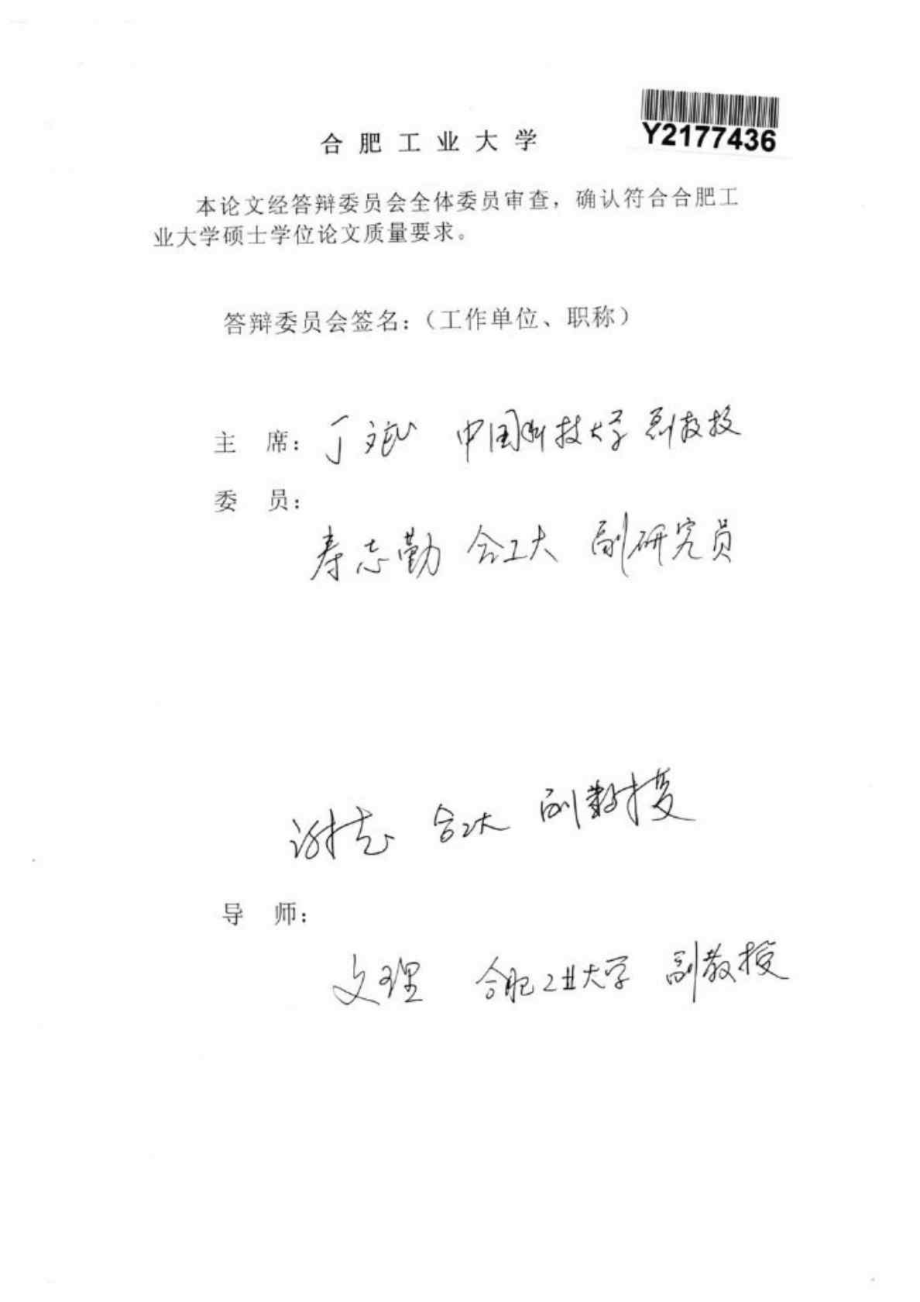 Y2177436
合肥工业大学
本论文经答辩委员会全体委员审查，确认符合合肥工
业大学硕士学位论文质量要求。
答辩委员会签名：（工作单位、职称）
主 席：丁斌 中国科技大学 副教授
委 员：
寿志勤 合工大 副研究员
谢志 合工大 副教授
导 师：
文理 合肥工业大学 副教授